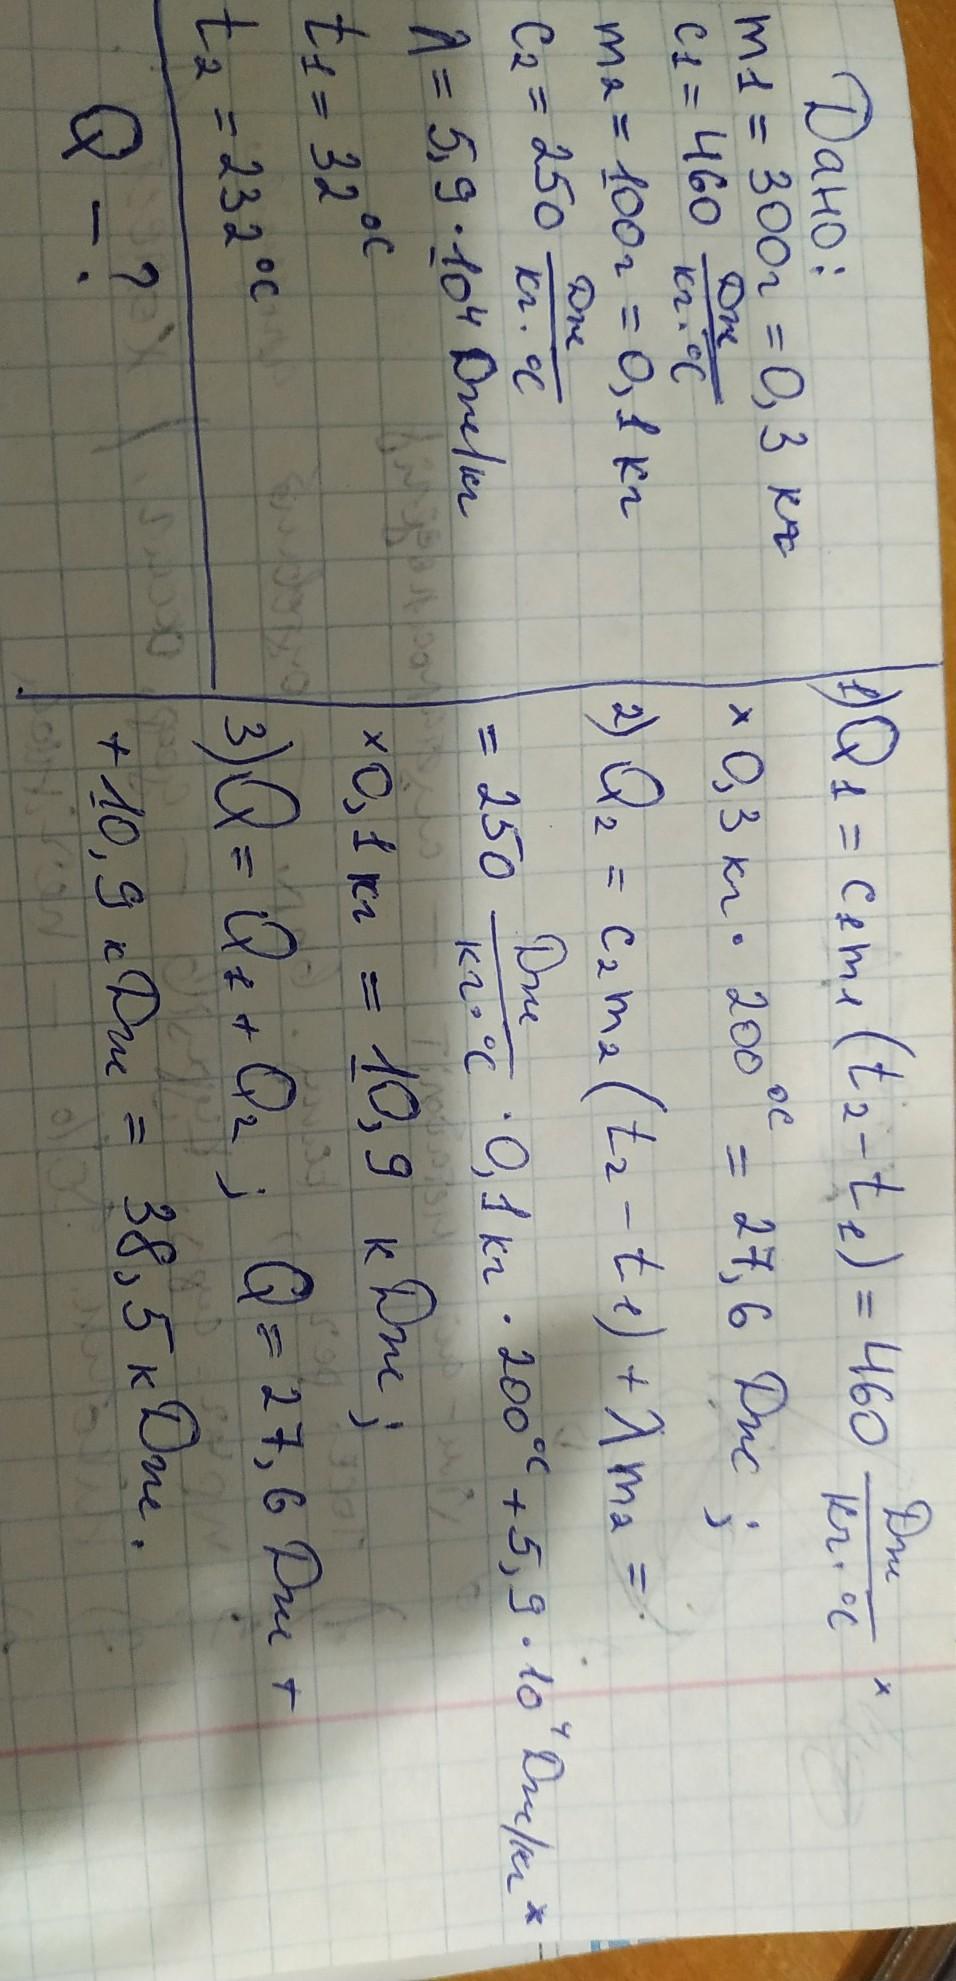 Дано:
m1 = 300г = 0,3 кг
c1 = 460 Дж/кг·°C
m2 = 100г = 0,1 кг
c2 = 250 Дж/кг·°C
λ = 5,9·10⁴ Дж/кг
t1 = 32°C
t2 = 232°C
Q – ?
1) Q1 = c1m1(t2 – t1) = 460 Дж/кг·°C ×
× 0,3 кг · 200°C = 27,6 Дж ;
2) Q2 = c2m2(t2 – t1) + λm2 =
= 250 Дж/кг·°C · 0,1 кг · 200°C + 5,9·10⁴ Дж/кг ×
× 0,1 кг = 10,9 кДж ;
3) Q = Q1 + Q2 ; Q = 27,6 Дж +
+ 10,9 кДж = 38,5 кДж.